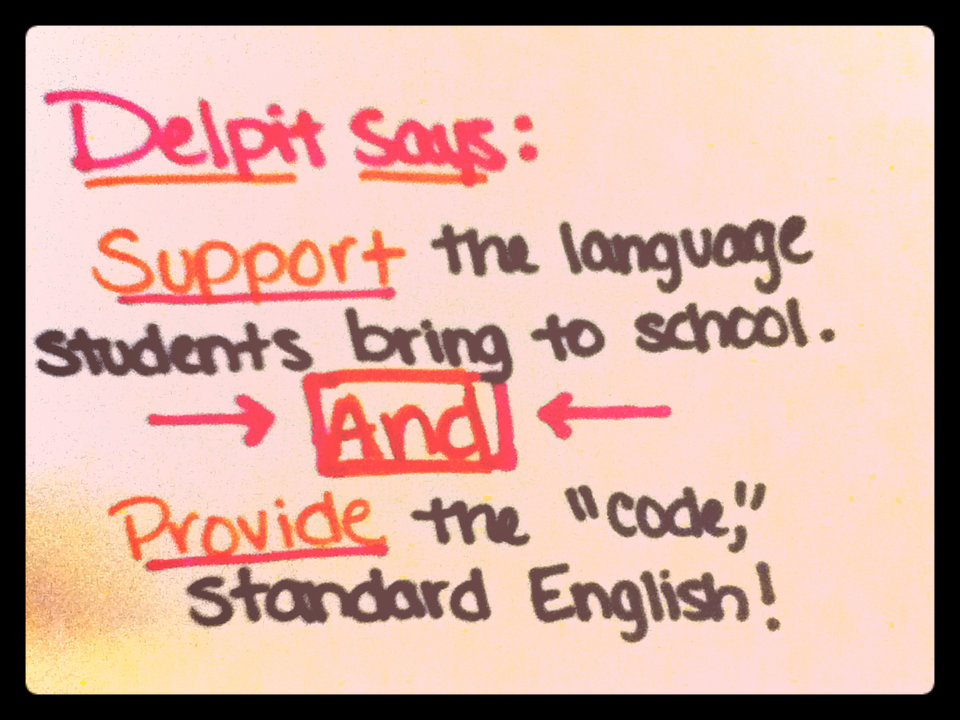 Delpit says:
Support the language
students bring to school.
And
Provide the "code,"
standard English!